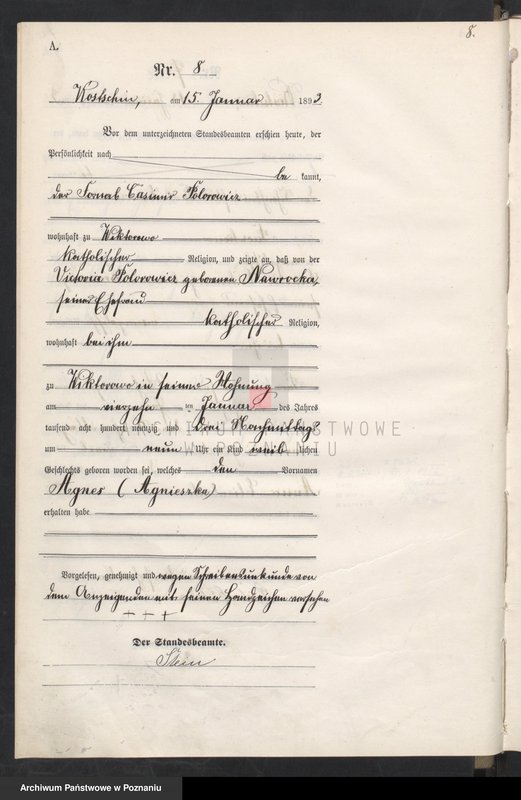 8.
A.
Nr. 8
Kostschin, am 15. Januar 1893.
Vor dem unterzeichneten Standesbeamten erschien heute, der
Persönlichkeit nach
be kannt,
der Casimir Polorowicz
wohnhaft zu Wiktorowo
katholischer Religion, und zeigte an, daß von der
Victoria Polorowicz geborenen Nawrocka,
seiner Ehefrau
katholischer Religion,
wohnhaft bei ihm
zu Wiktorowo in seiner Wohnung
am vierzehn ten Januar des Jahres
tausend acht hundert neunzig und drei Nachmittags
um neun Uhr ein Kind weib lichen
Geschlechts geboren worden sei, welches den Vornamen
Agnes (Agnieszka)
erhalten habe
Vorgelesen, genehmigt und wegen Schreibensunkunde von
dem Anzeigenden mit seinen Handzeichen versehen
+ + +
Der Standesbeamte.
Stein
ARCHIWUM PAŃSTWOWE
W POZNANIU
Archiwum Państwowe w Poznaniu